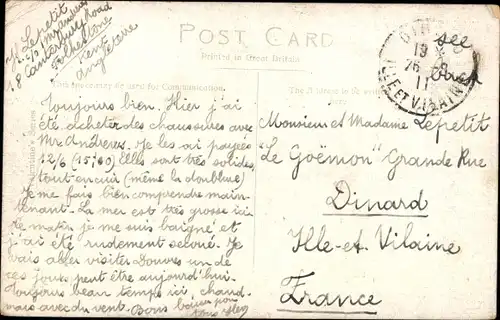 Y. Lepetit
c/o Mr Andrews
18 Canterbury Road
Folkestone
Kent
Angleterre
POST CARD
Printed in Great Britain
This space may be used for Communication.
The Address to be written here.
see
back
DINARD
19
26 -8
11
ILLE-ET-VILAINE
Toujours bien. Hier j'ai
été acheter des chaussures avec
Mr Andrews. Je les ai payées
12/6 (15,60) Elles sont très solides,
tout en cuir (même la doublure)
Je me fais bien comprendre main-
tenant. La mer est très grosse ici
ce matin je me suis baigné et
j'ai été rudement secoué. Je
vais aller visiter Douvres un de
ces jours peut être aujourd'hui.
Toujours beau temps ici, chaud
mais avec du vent. Bons baisers pour
tous
Monsieur et Madame Lepetit
"Le Goëmon" Grande Rue
Dinard
Ille-et-Vilaine
France